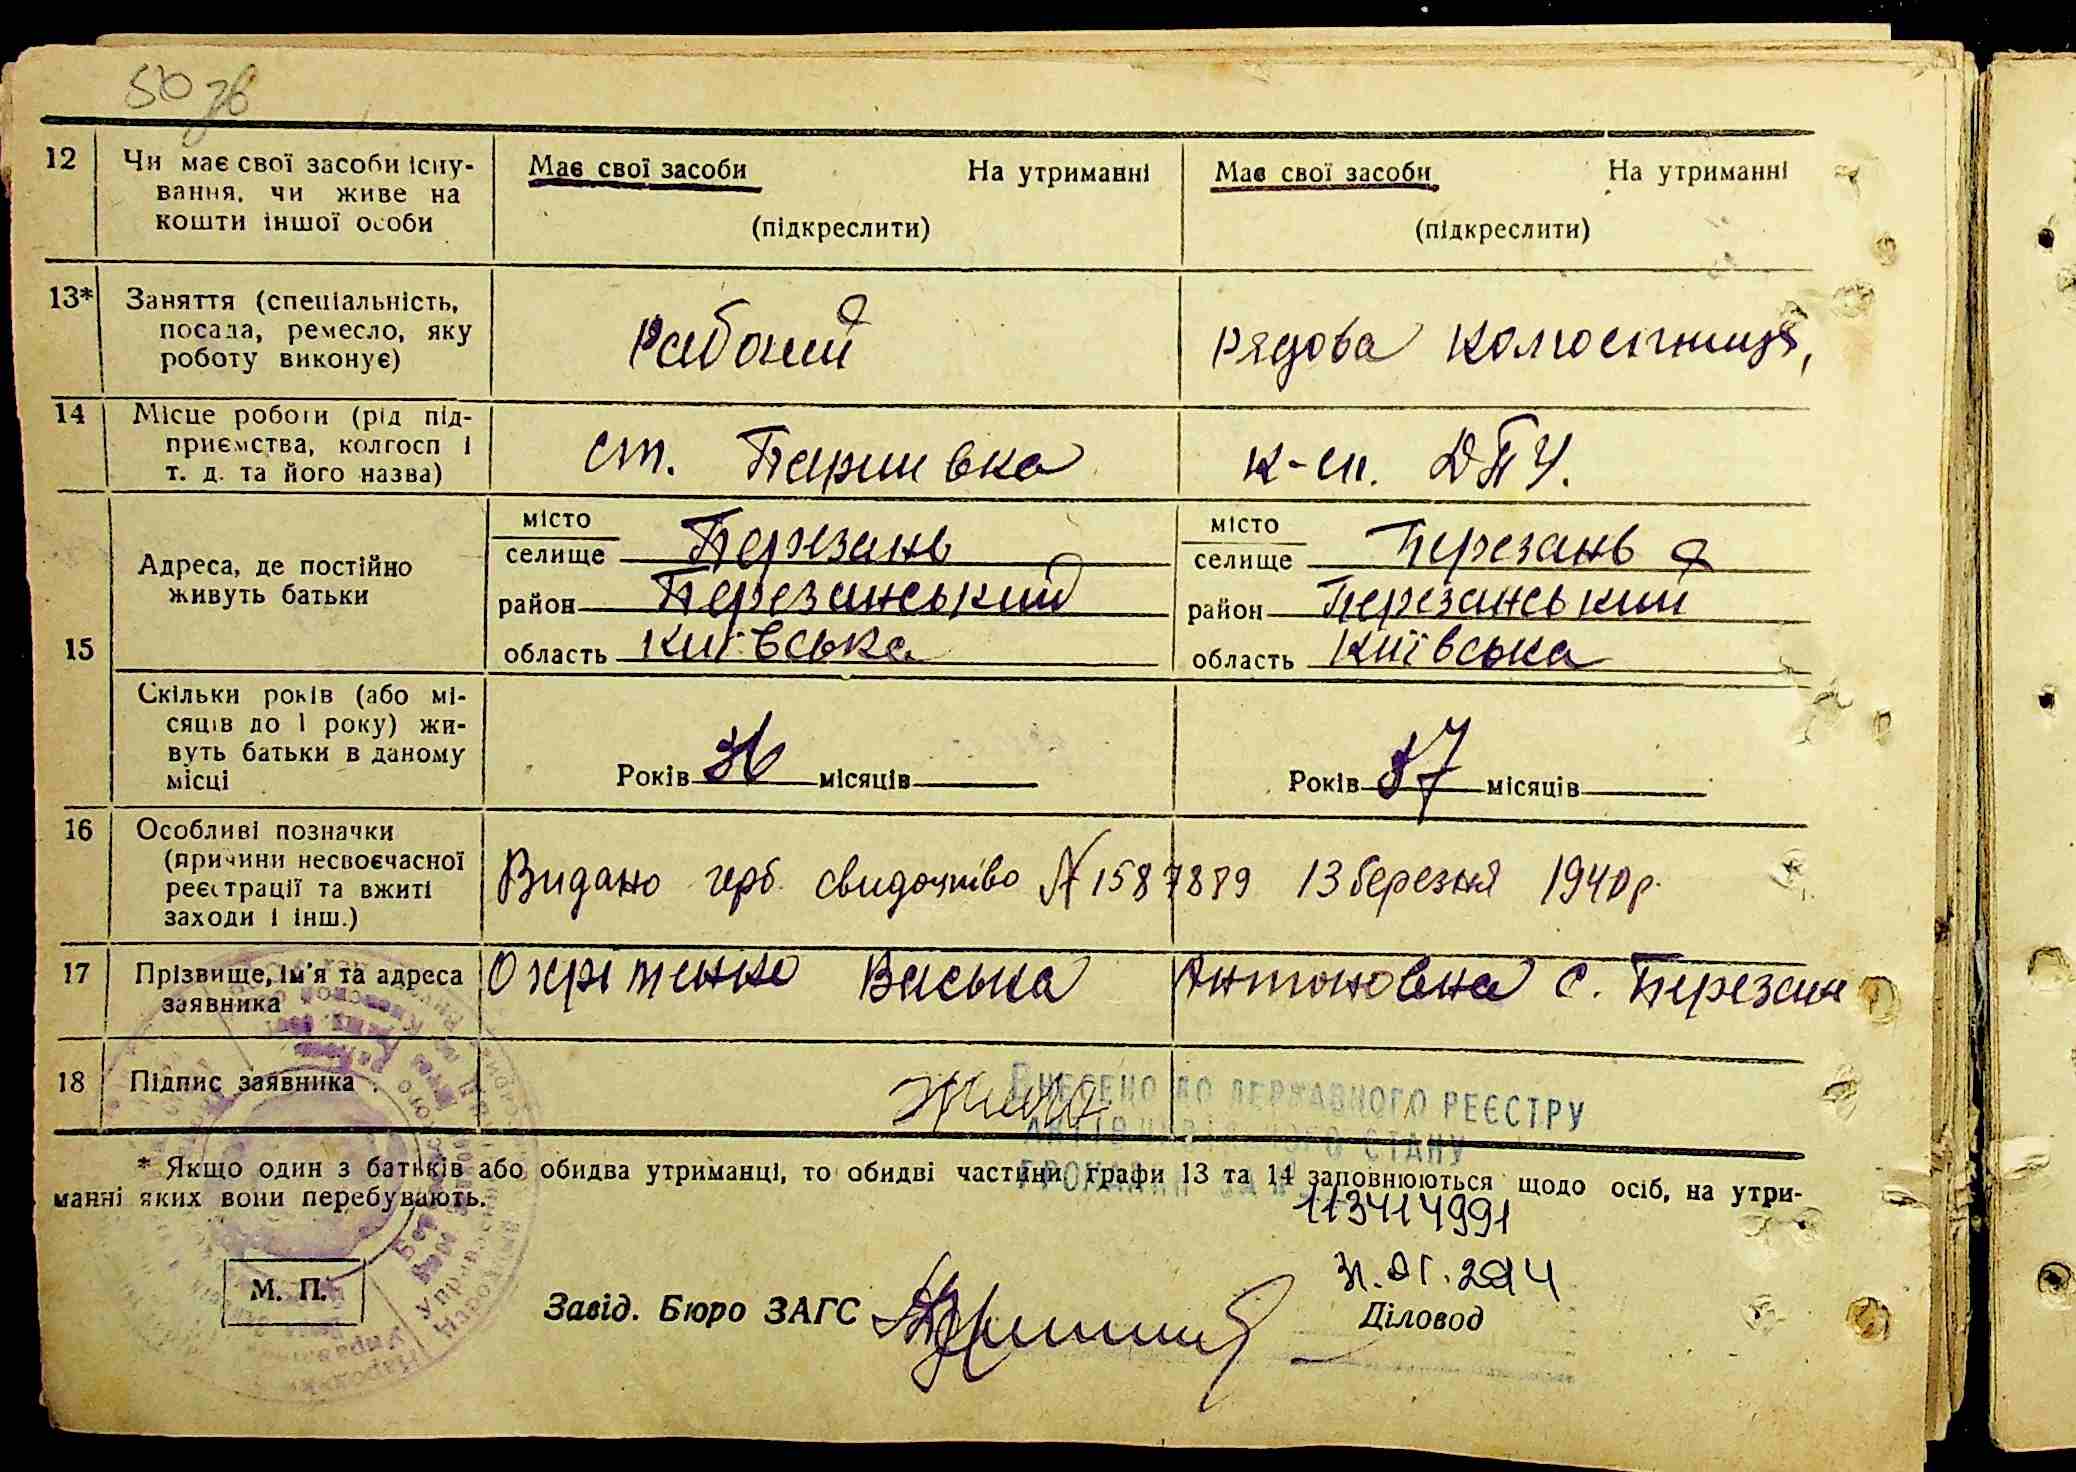 50 зв
12 Чи має свої засоби існу-
вання, чи живе на
кошти іншої особи
Має свої засоби На утриманні
(підкреслити)
Має свої засоби На утриманні
(підкреслити)
13* Заняття (спеціальність,
посада, ремесло, яку
роботу виконує)
Рабочий
Рядова колгоспниця,
14 Місце роботи (рід під-
приємства, колгосп і
т. д. та його назва)
ст.
к-сп. ДПУ.
15
Адреса, де постійно
живуть батьки
місто
селище Березань
район Березанський
область Київська
місто
селище Березань
район Березанський
область Київська
Скільки років (або мі-
сяців до 1 року) жи-
вуть батьки в даному
місці
Років 36 місяців
Років 37 місяців
16 Особливі позначки
(причини несвоєчасної
реєстрації та вжиті
заходи і інш.)
Видано герб. свидоцтво N 1587889 13 березня 1940 р.
17 Прізвище, ім'я та адреса
заявника
Охріменко Васька Антоновна с. Березань
18 Підпис заявника
ВНЕСЕНО ДО ДЕРЖАВНОГО РЕЄСТРУ
АКТІВ ЦИВІЛЬНОГО СТАНУ
ГРОМАДЯН ЗА №
* Якщо один з батьків або обидва утриманці, то обидві частини графи 13 та 14 заповнюються щодо осіб, на утри-
манні яких вони перебувають.
113414991
31.01.2014
М. П.
Завід. Бюро ЗАГС
Діловод